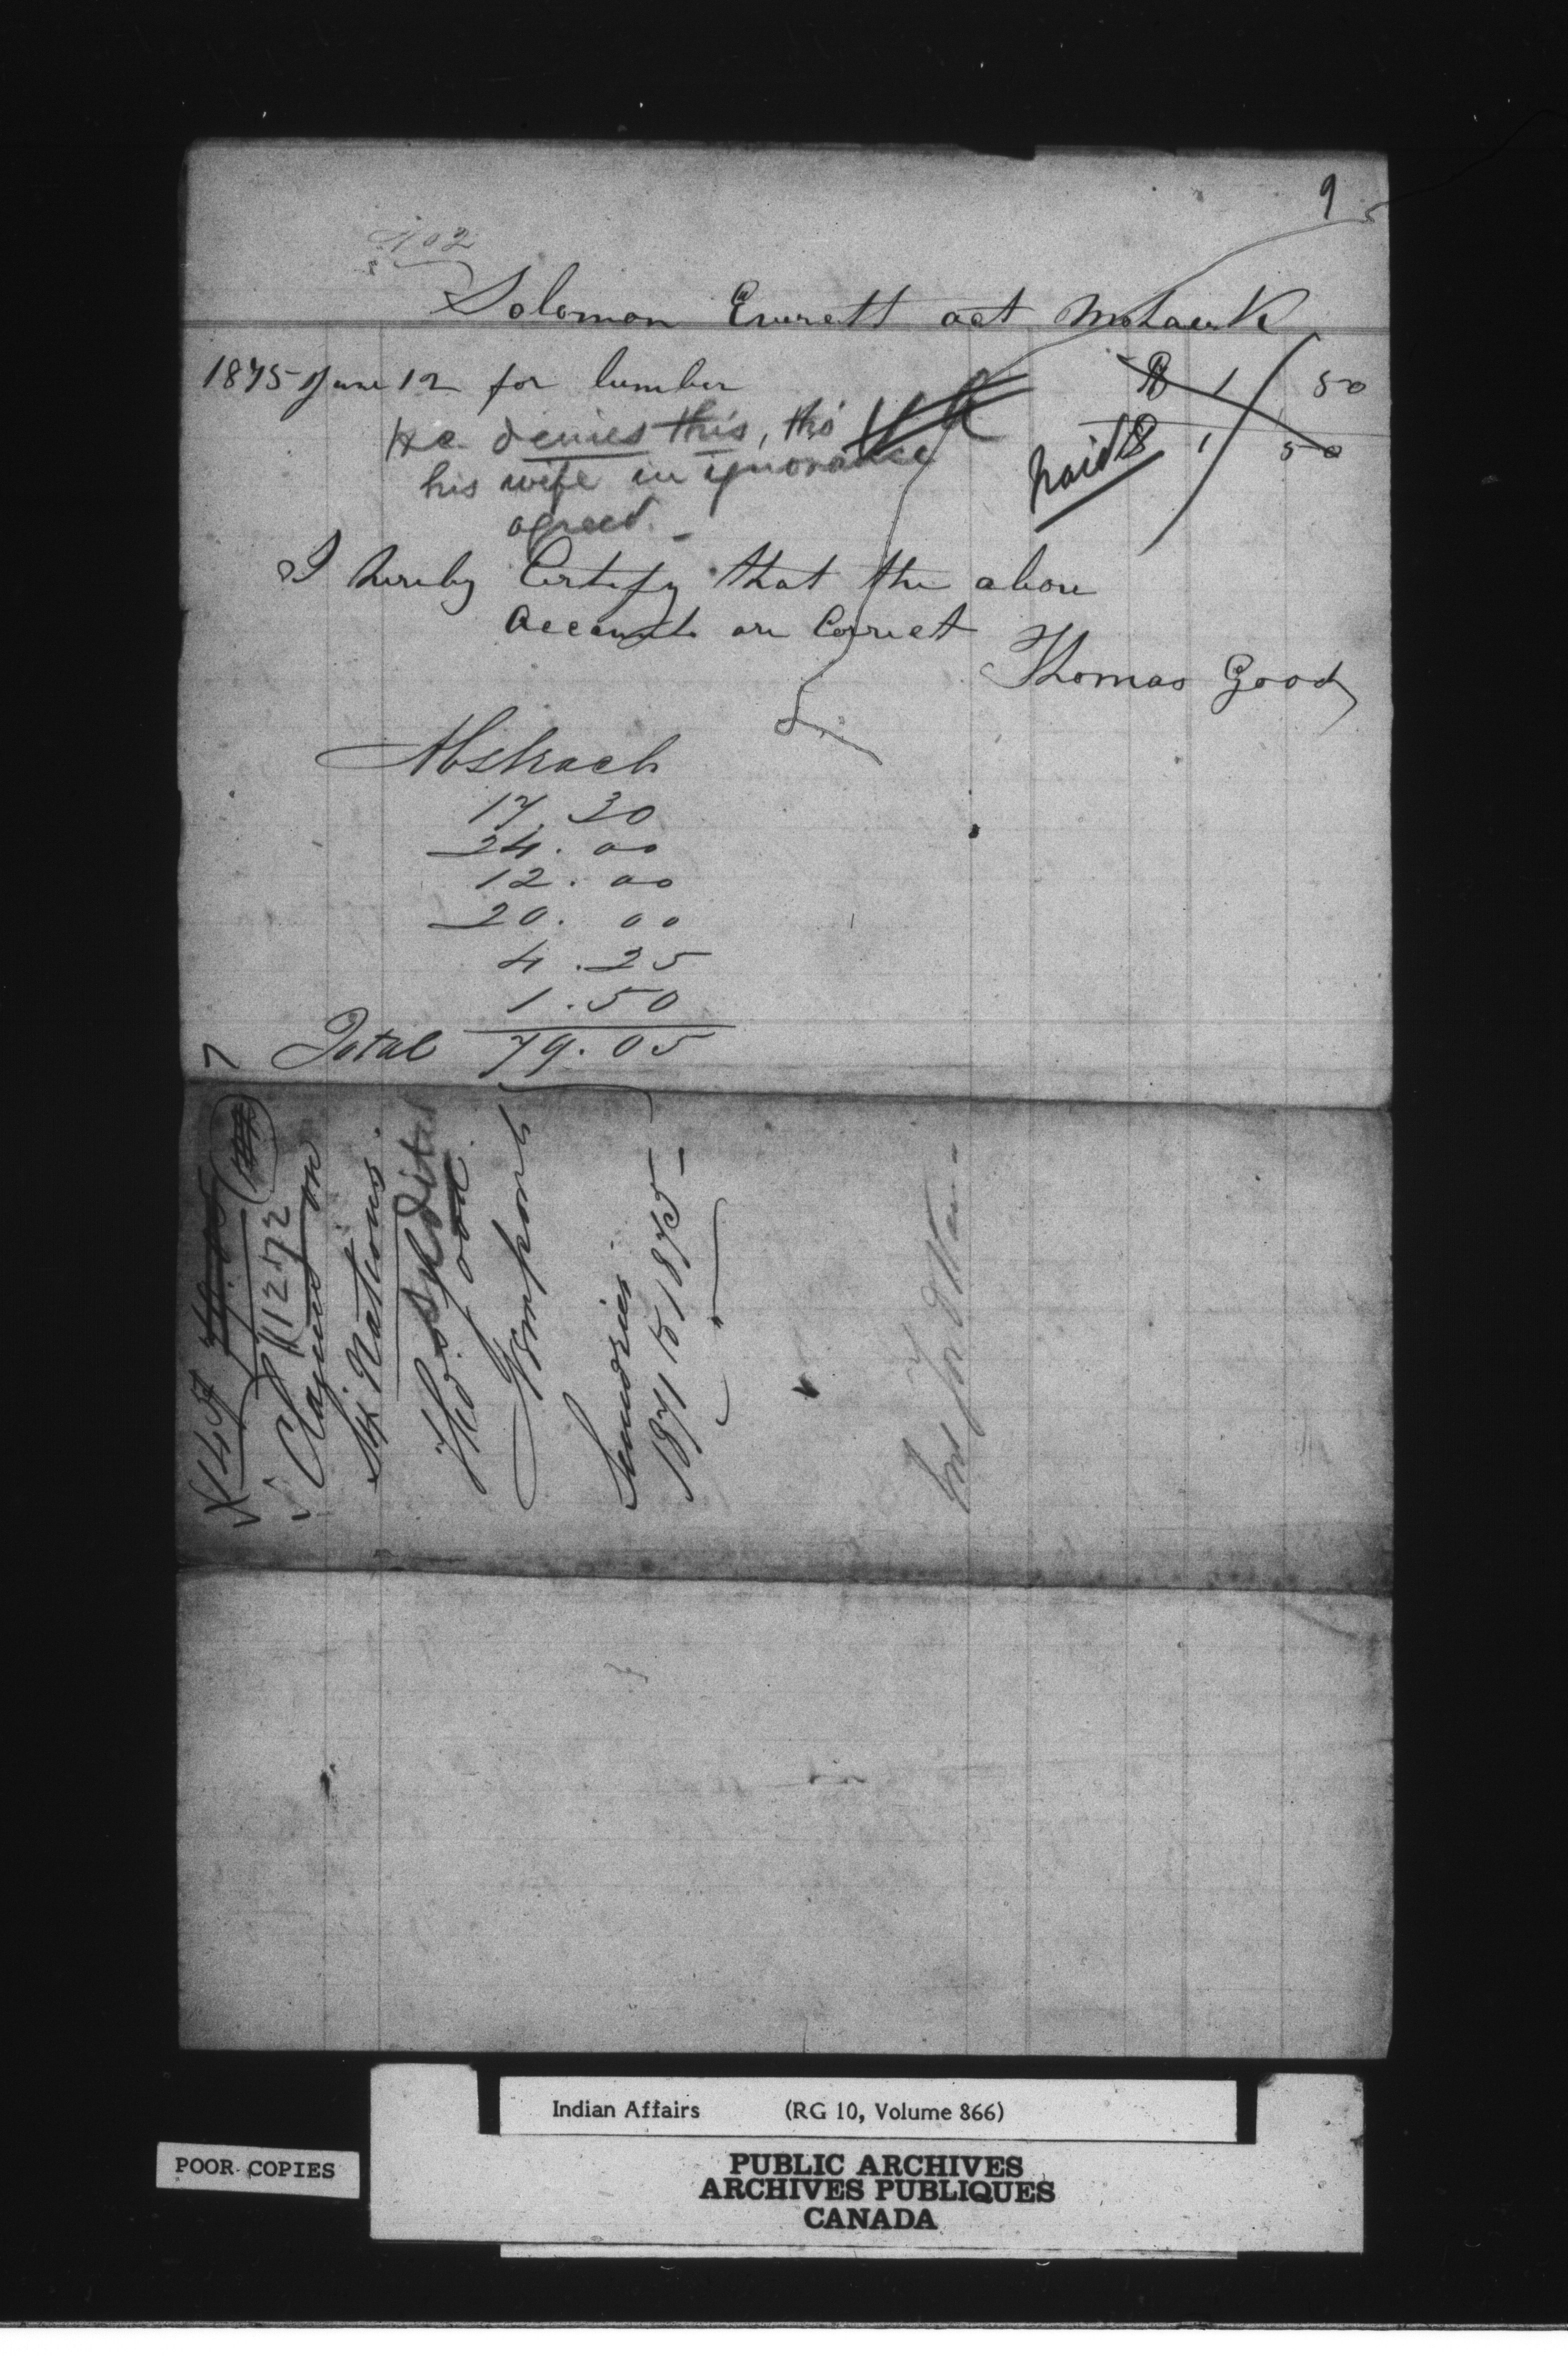 9
402
Solomon Everett act Mohawk
1875 June 12 for lumber $ 1 50
He denies this, tho'
his wife in ignorance
agreed. -
paid $ 1 50
I hereby Certify that the above
Accounts are Correct
Thomas Good
Abstract
17.30
24.00
12.00
20.00
4.25
1.50
Total 79.05
Claim on
Six Nations.
Tho. Good
Sundries
1871 to 1875 -
Indian Affairs (RG 10, Volume 866)
POOR COPIES
PUBLIC ARCHIVES
ARCHIVES PUBLIQUES
CANADA